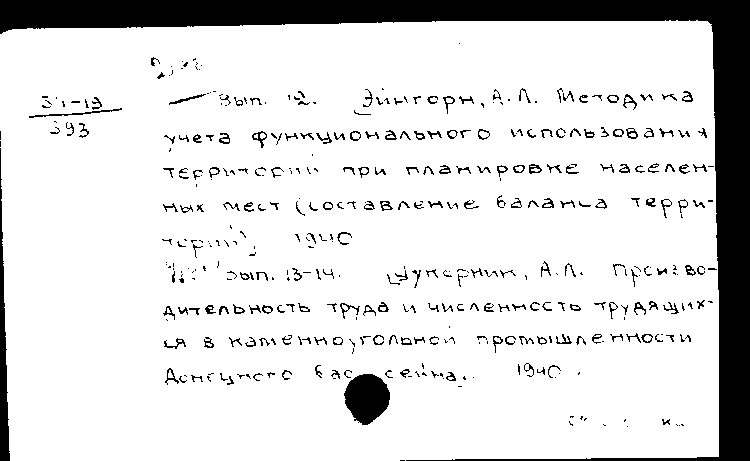 31-19
393
Вып. 12. Эйнгорн, А.Л. Методика
учета функционального использования
территорий при планировке населен-
ных мест (составление баланса терри-
торий), 1940
Вып. 13-14. Цукерник, А.Л. Произво-
дительность труда и численность трудящих-
ся в каменноугольной промышленности
Донецкого бассейна. 1940.